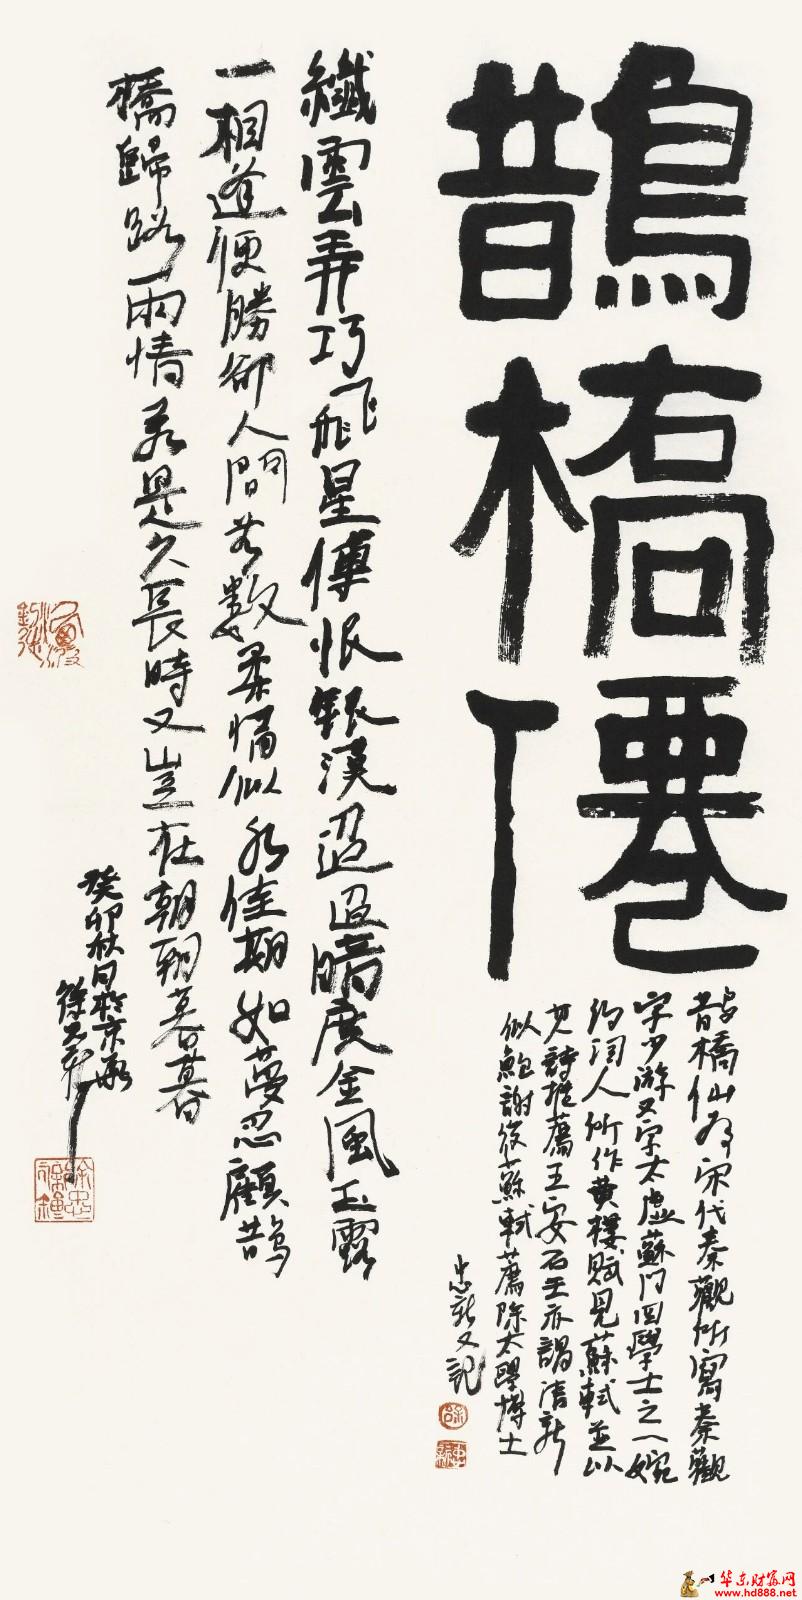 鵲橋僊
鵲橋仙為宋代秦觀所寫秦觀
字少游又字太虛蘇門四學士之一婉
約詞人所作黃樓賦見蘇軾並以
其詩推薦王安石王亦謂清新
似鮑謝後蘇軾薦除太學博士
忠新又記
纖雲弄巧飛星傳恨銀漢迢迢暗度金風玉露
一相逢便勝卻人間無數柔情似水佳期如夢忍顧鵲
橋歸路兩情若是久長時又豈在朝朝暮暮
癸卯秋日於京
徐忠新
华东财富网
www.hd888.net